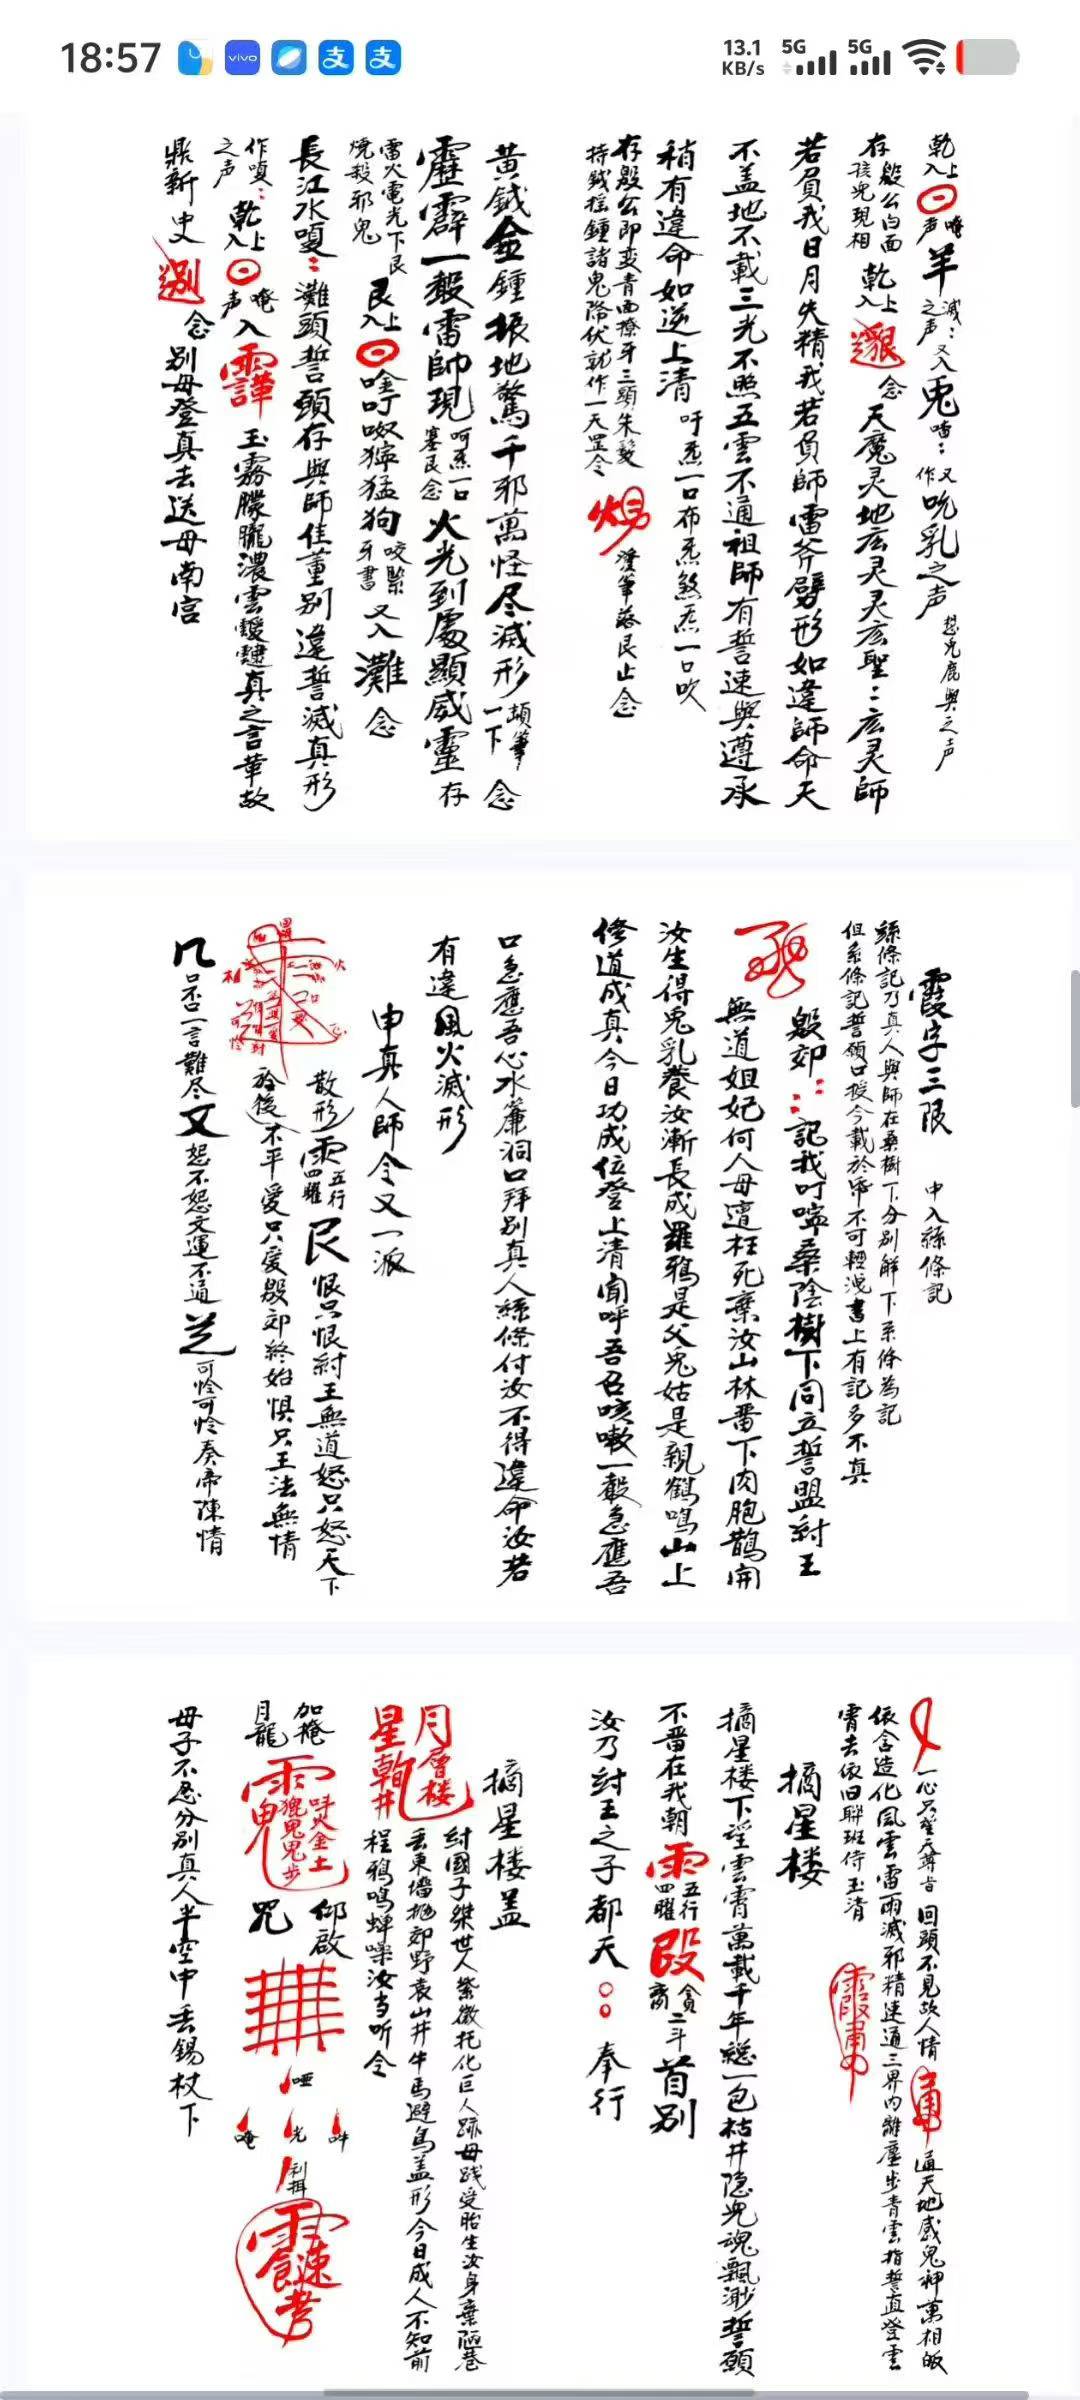 18:57
vivo
支
支
13.1
KB/s
5G
5G
乾上
入
唵
声
羊
之声
又入
兔
又
作
吮乳之声
存殷公白面
孩儿現相
乾上
入
念
天魔灵地広灵灵広聖：広灵師
若負我日月失精我若負師雷斧劈形如違師命天
不盖地不載三光不照五雲不通祖師有誓速與遵承
稍有違命如逆上清
吁炁一口布炁煞炁一口吹
存殷公即变青面獠牙三頭朱髮
持鉞摇鍾諸鬼降伏就作一天罡令
念
黄鉞金鍾振地驚千邪萬怪尽滅形
頓筆
一下
念
霹靂一聲雷帥現
呵炁一口
塞艮念
火光到處顯威靈
存
雷火電光下艮
燒殺邪鬼
艮上
入
猛狗
咬緊
牙書
又入
灘
念
長江水嗄：灘頭誓願存與師佳董别違誓滅真形
作嗄：
之声
乾上
入
唵
声
入
玉霧朦朧濃雲靉靆真之言華故
鼎新史
念
别母登真去送母南宫
霞字三限
中入絲條記
絲條記乃真人與師在桑樹下分别解下系條為記
但系條記誓願口授今載於帋不可輕洩書上有記多不真
殷郊：：記我叮嚀桑陰樹下同立誓盟紂王
無道妲妃何人母遭枉死棄汝山林番下肉胞鵲開
汝生得兎乳養汝漸長成羅鴉是父兎姑是親鶴鳴山上
修道成真今日功成位登上清聞呼吾召咳嗽一聲急應吾
口急應吾心水簾洞口拜别真人絲條付汝不得違命汝若
有違風火滅形
申真人師令又一派
散形
雨
五行
四曜
艮
恨只恨紂王無道怒只怒天下
不平愛只愛殷郊終始惧只王法無情
一言難尽
文
恕不恕文運不通
芝
可怜可怜奏帝陳情
一心只望天尊旨
回頭不見故人情
通天地感鬼神萬相皈
依含造化風雲雷雨滅邪精速通三界内離塵步青雲指誓直登雲
霄去依旧聯班侍玉清
摘星楼
摘星楼下淫雲霄萬載千年總一包枯井隐児魂飄渺誓願
不番在我朝
雨
五行
四曜
殷
貪
二斗
首别
汝乃紂王之子都天
奉行
摘星楼盖
紂國子桀世人紫微托化巨人跡母践受胎生汝身棄陋巷
丢東墻抛郊野袁山井牛馬避鳥盖形今日成人不知前
程鴉鳴蝉噪汝当听令
月
層楼
星
井
加掩
月龍
仰啟
咒
哑
唵
光
吽
母子不忍分别真人半空中丢錫杖下